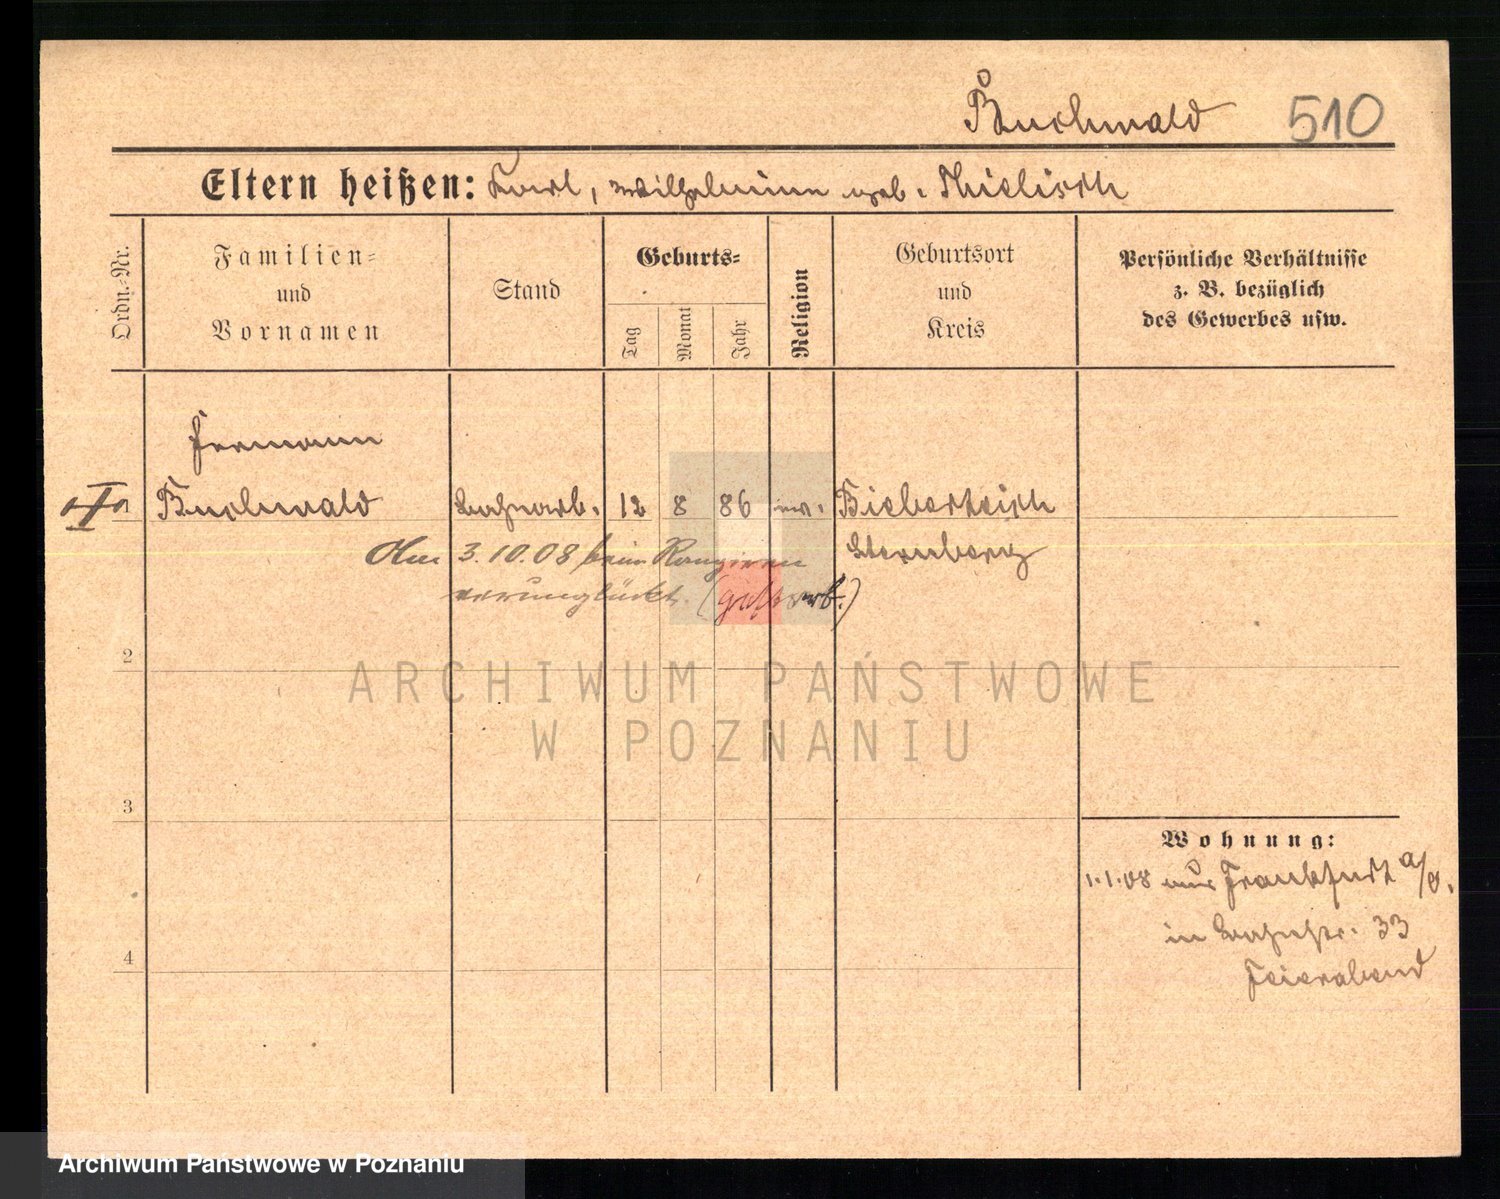 Buchwald 510
Eltern heißen: Karl, Wilhelmine geb. Thielisch
Ordn.-Nr.
Familien-
und
Vornamen
Stand
Geburts-
Tag
Monat
Jahr
Religion
Geburtsort
und
Kreis
Persönliche Verhältnisse
z. B. bezüglich
des Gewerbes usw.
Hermann
Buchwald Bahnarb. 12 8 86 ev. Biberteich
Sternberg
Am 3.10.08 beim Rangieren
verunglückt. (gestorb.)
2
3
4
Wohnung:
1.1.08 aus Frankfurt a/O.
in Bahnstr. 33
Feierabend
ARCHIWUM PAŃSTWOWE
W POZNANIU
Archiwum Państwowe w Poznaniu